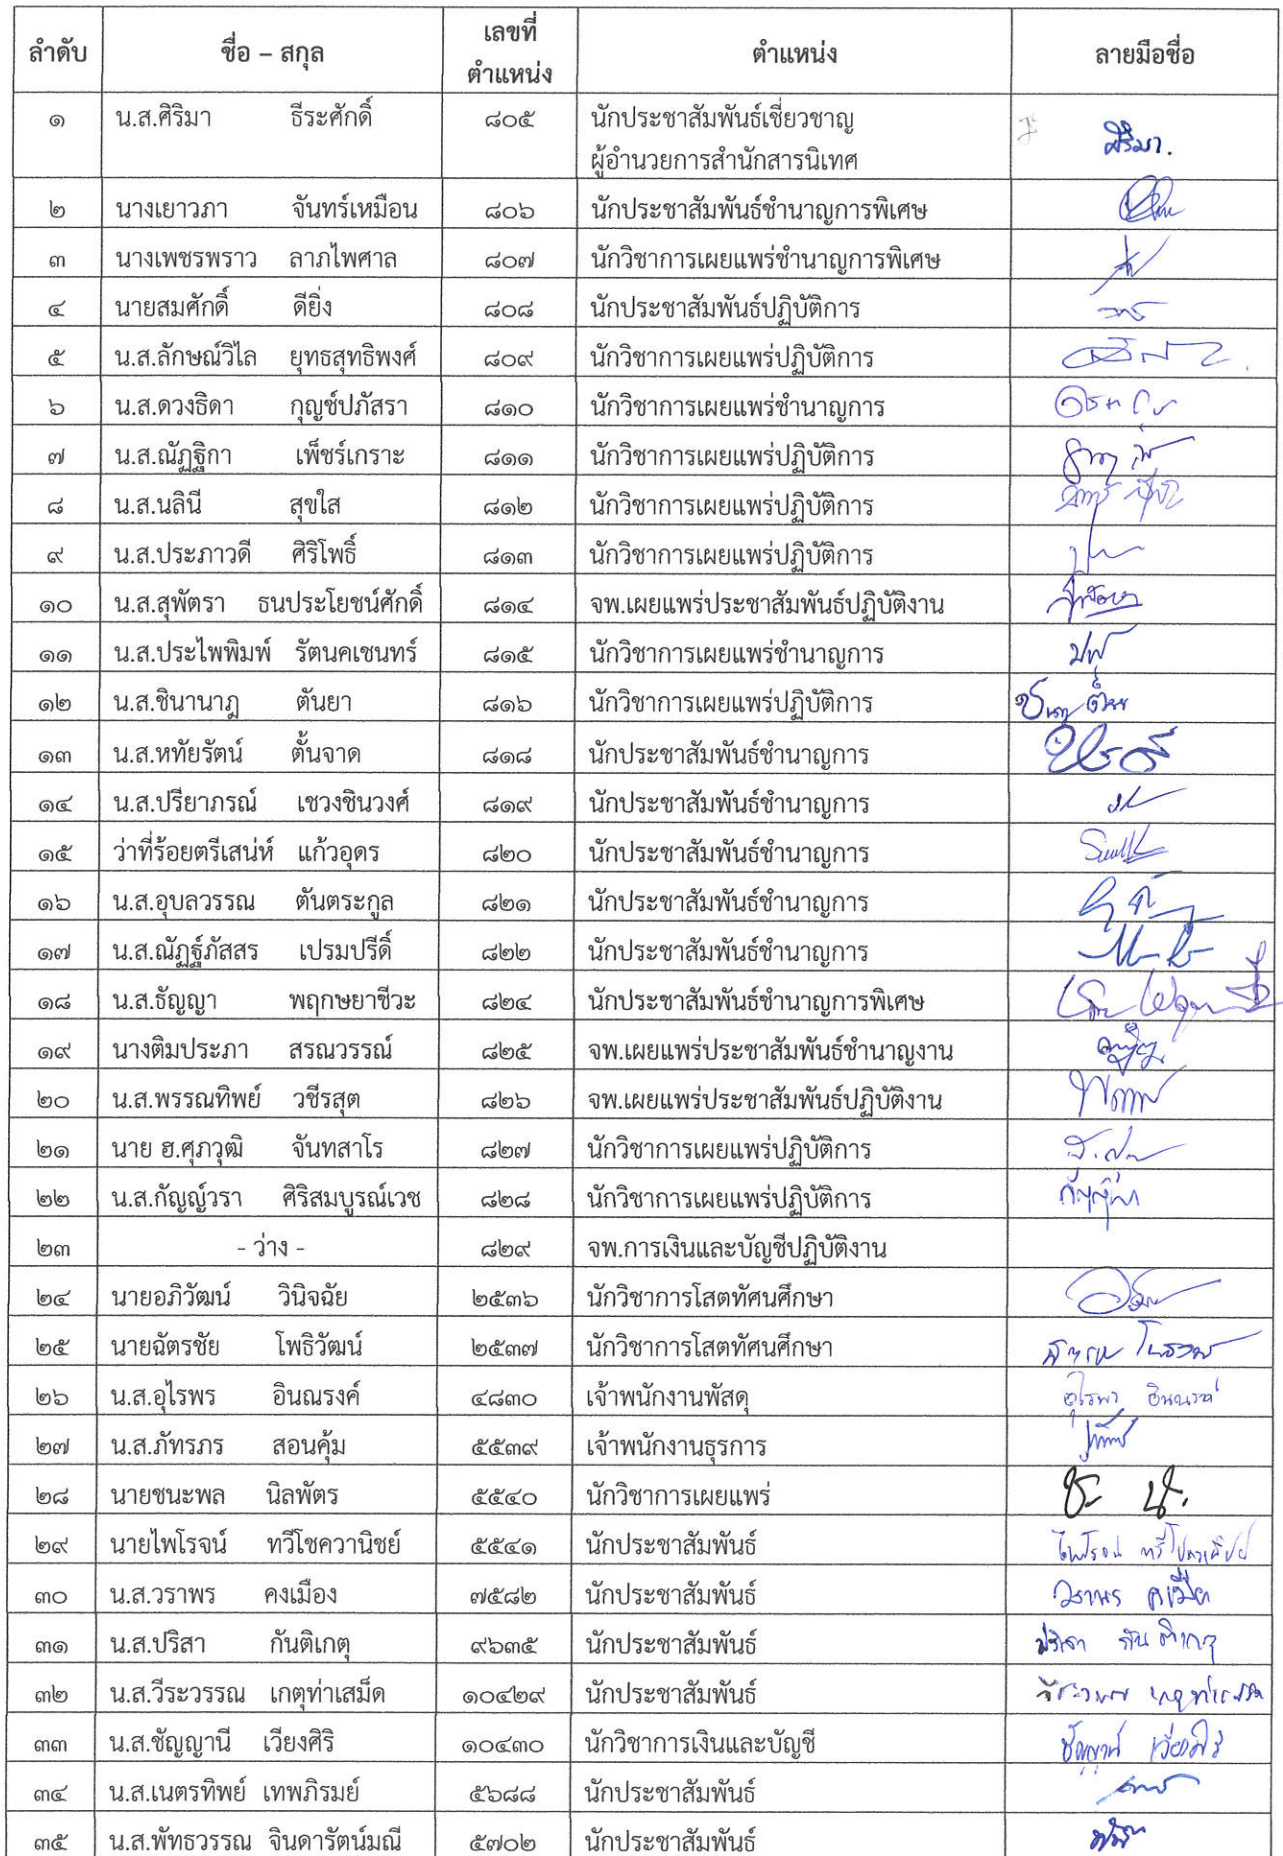 ลำดับ ชื่อ – สกุล เลขที่ตำแหน่ง ตำแหน่ง ลายมือชื่อ
๑ น.ส.ศิริมา ธีระศักดิ์ ๘๐๕ นักประชาสัมพันธ์เชี่ยวชาญ ศิริมา.
ผู้อำนวยการสำนักสารนิเทศ
๒ นางเยาวภา จันทร์เหมือน ๘๐๖ นักประชาสัมพันธ์ชำนาญการพิเศษ
๓ นางเพชรพราว ลาภไพศาล ๘๐๗ นักวิชาการเผยแพร่ชำนาญการพิเศษ
๔ นายสมศักดิ์ ดียิ่ง ๘๐๘ นักประชาสัมพันธ์ปฏิบัติการ
๕ น.ส.ลักษณ์วิไล ยุทธสุทธิพงศ์ ๘๐๙ นักวิชาการเผยแพร่ปฏิบัติการ
๖ น.ส.ดวงธิดา กุญช์ปภัสรา ๘๑๐ นักวิชาการเผยแพร่ชำนาญการ
๗ น.ส.ณัฏฐิกา เพ็ชร์เกราะ ๘๑๑ นักวิชาการเผยแพร่ปฏิบัติการ
๘ น.ส.นลินี สุขใส ๘๑๒ นักวิชาการเผยแพร่ปฏิบัติการ
๙ น.ส.ประภาวดี ศิริโพธิ์ ๘๑๓ นักวิชาการเผยแพร่ปฏิบัติการ
๑๐ น.ส.สุพัตรา ธนประโยชน์ศักดิ์ ๘๑๔ จพ.เผยแพร่ประชาสัมพันธ์ปฏิบัติงาน
๑๑ น.ส.ประไพพิมพ์ รัตนคเชนทร์ ๘๑๕ นักวิชาการเผยแพร่ชำนาญการ
๑๒ น.ส.ชินานาฎ ตันยา ๘๑๖ นักวิชาการเผยแพร่ปฏิบัติการ
๑๓ น.ส.หทัยรัตน์ ตั้นจาด ๘๑๘ นักประชาสัมพันธ์ชำนาญการ
๑๔ น.ส.ปรียาภรณ์ เชวงชินวงศ์ ๘๑๙ นักประชาสัมพันธ์ชำนาญการ
๑๕ ว่าที่ร้อยตรีเสน่ห์ แก้วอุดร ๘๒๐ นักประชาสัมพันธ์ชำนาญการ
๑๖ น.ส.อุบลวรรณ ตันตระกูล ๘๒๑ นักประชาสัมพันธ์ชำนาญการ
๑๗ น.ส.ณัฏฐ์ภัสสร เปรมปรีดิ์ ๘๒๒ นักประชาสัมพันธ์ชำนาญการ
๑๘ น.ส.ธัญญา พฤกษยาชีวะ ๘๒๔ นักประชาสัมพันธ์ชำนาญการพิเศษ
๑๙ นางติมประภา สรณวรรณ์ ๘๒๕ จพ.เผยแพร่ประชาสัมพันธ์ชำนาญงาน
๒๐ น.ส.พรรณทิพย์ วชีรสุต ๘๒๖ จพ.เผยแพร่ประชาสัมพันธ์ปฏิบัติงาน
๒๑ นาย ฮ.ศุภวุฒิ จันทสาโร ๘๒๗ นักวิชาการเผยแพร่ปฏิบัติการ
๒๒ น.ส.กัญญ์วรา ศิริสมบูรณ์เวช ๘๒๘ นักวิชาการเผยแพร่ปฏิบัติการ
๒๓ - ว่าง - ๘๒๙ จพ.การเงินและบัญชีปฏิบัติงาน
๒๔ นายอภิวัฒน์ วินิจฉัย ๒๕๓๖ นักวิชาการโสตทัศนศึกษา
๒๕ นายฉัตรชัย โพธิวัฒน์ ๒๕๓๗ นักวิชาการโสตทัศนศึกษา
๒๖ น.ส.อุไรพร อินณรงค์ ๔๘๓๐ เจ้าพนักงานพัสดุ อุไรพร อินณรงค์
๒๗ น.ส.ภัทรภร สอนคุ้ม ๕๕๓๙ เจ้าพนักงานธุรการ
๒๘ นายชนะพล นิลพัตร ๕๕๔๐ นักวิชาการเผยแพร่
๒๙ นายไพโรจน์ ทวีโชควานิชย์ ๕๕๔๑ นักประชาสัมพันธ์ ไพโรจน์ ทวีโชควานิชย์
๓๐ น.ส.วราพร คงเมือง ๗๕๘๒ นักประชาสัมพันธ์ วราพร คงเมือง
๓๑ น.ส.ปริสา กันติเกตุ ๙๖๓๕ นักประชาสัมพันธ์ ปริสา กันติเกตุ
๓๒ น.ส.วีระวรรณ เกตุท่าเสม็ด ๑๐๔๒๙ นักประชาสัมพันธ์ วีระวรรณ เกตุท่าเสม็ด
๓๓ น.ส.ชัญญานี เวียงศิริ ๑๐๔๓๐ นักวิชาการเงินและบัญชี ชัญญานี เวียงศิริ
๓๔ น.ส.เนตรทิพย์ เทพภิรมย์ ๕๖๘๘ นักประชาสัมพันธ์
๓๕ น.ส.พัทธวรรณ จินดารัตน์มณี ๕๗๐๒ นักประชาสัมพันธ์